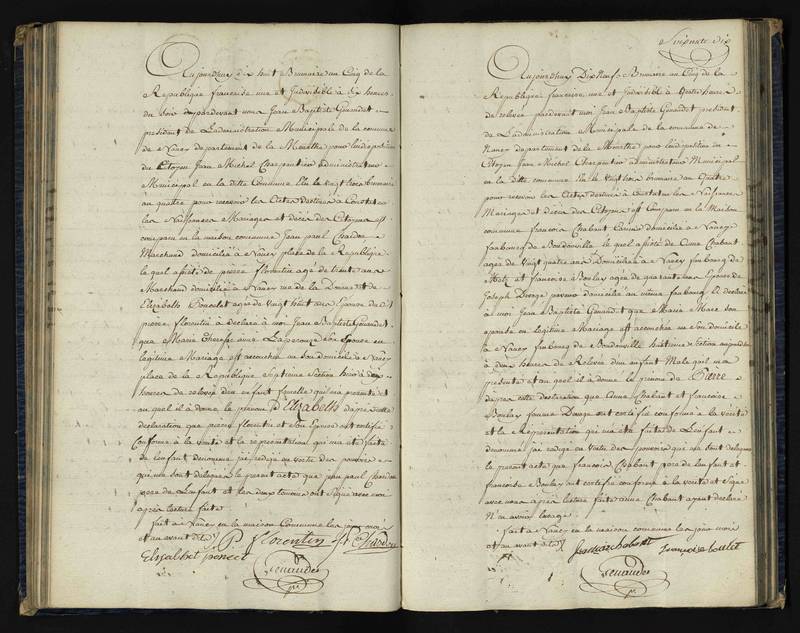 Aujourdhuy dix huit Brumaire an Cinq de la
Republique francaise une et Indivisible à six heures
du soir pardevant nous Jean Baptiste Genaudet
president de L'administration Municipale de la commune
de Nancy departement de la Meurthe pour lindisposition
du Citoyen Jean Michel Charpentier administrateur
Municipal en la ditte Commune Elu le vingt trois brumaire
an quatre pour recevoir les Actes destinés à Constater
les Naissances Mariages et décès des Citoyens est
comparu en la maison commune Jean paul Chardon
Marchand domicilié à Nancy place de la Republique
le quel assisté de pierre florentin agé de trente ans
Marchand domicilié à Nancy rue de la Douane et de
Elizabeth Poncelet agée de vingt huit ans Epouse du dt
pierre florentin a déclaré à moi Jean Baptiste Genaudet
que Marie Therese anne Laperouze son Epouse en
légitime Mariage est accouchée en son domicile à Nancy
place de la Republique Septieme Section hier à dix
heures de relevée d'un enfant femelle qu'il m'a présenté et
au quel il a donné le prénom d'Elizabeth d'apres cette
déclaration que pierre florentin et son Epouse ont certifié
Conforme à la verité et la représentation qui m'a été faite
de L'enfant denommé j'ai redigé en vertu des pouvoirs
qui me sont délégués le present acte que jean paul Chardon
pere de L'enfant et les deux temoins ont signé avec moi
après lecture faite
fait à Nancy en la maison Commune les jour mois
et an avant dits
P. florentin
Chardon
Elisabet poncet
Genaudet
Soixante dix
Aujourdhuy Dix Neuf Brumaire an Cinq de la
République francaise une et Indivisible à quatre heures
de relevée pardevant moi Jean Baptiste Genaudet president
de L'administration Municipale de la commune de
Nancy departement de la Meurthe pour lindisposition du
Citoyen Jean Michel Charpentier administrateur Municipal
en la ditte commune Elu le Vingt trois brumaire an Quatre
pour recevoir les Actes destinés à constater les Naissances
Mariages et décès des Citoyens est Comparu en la Maison
commune francois Chabant domicilié à Nancy
faubourg de Boudonville le quel assisté de Anne Chabant
agée de Vingt quatre ans Domiciliée à Nancy faubourg de
Metz et francoise Boulay agée de quarante ans Epouse de
Joseph domicilié au même faubourg a déclaré
à moi Jean Baptiste Genaudet que Marie Marc son
épouse en légitime Mariage est accouchée en son domicile
à Nancy faubourg de Boudonville huitieme Section aujourdhui
à deux heures de Relevée d'un enfant Male qu'il m'a
présenté et au quel il a donné le prénom de Pierre
d'apres cette declaration que Anne Chabant et francoise
Boulay ont certifié conforme à la verité
et la Representation qui m'a été faite de L'enfant
denommé j'ai redigé en Vertu des pouvoirs qui me sont délégués
le present acte que francois Chabant pere de L'enfant et
francoise Boulay ont certifié conforme à la verité et signé
avec nous après lecture faite anne Chabant ayant declaré
N'en avoir l'usage
fait à Nancy en la maison commune les jour mois
et an avant dits
Genaudet